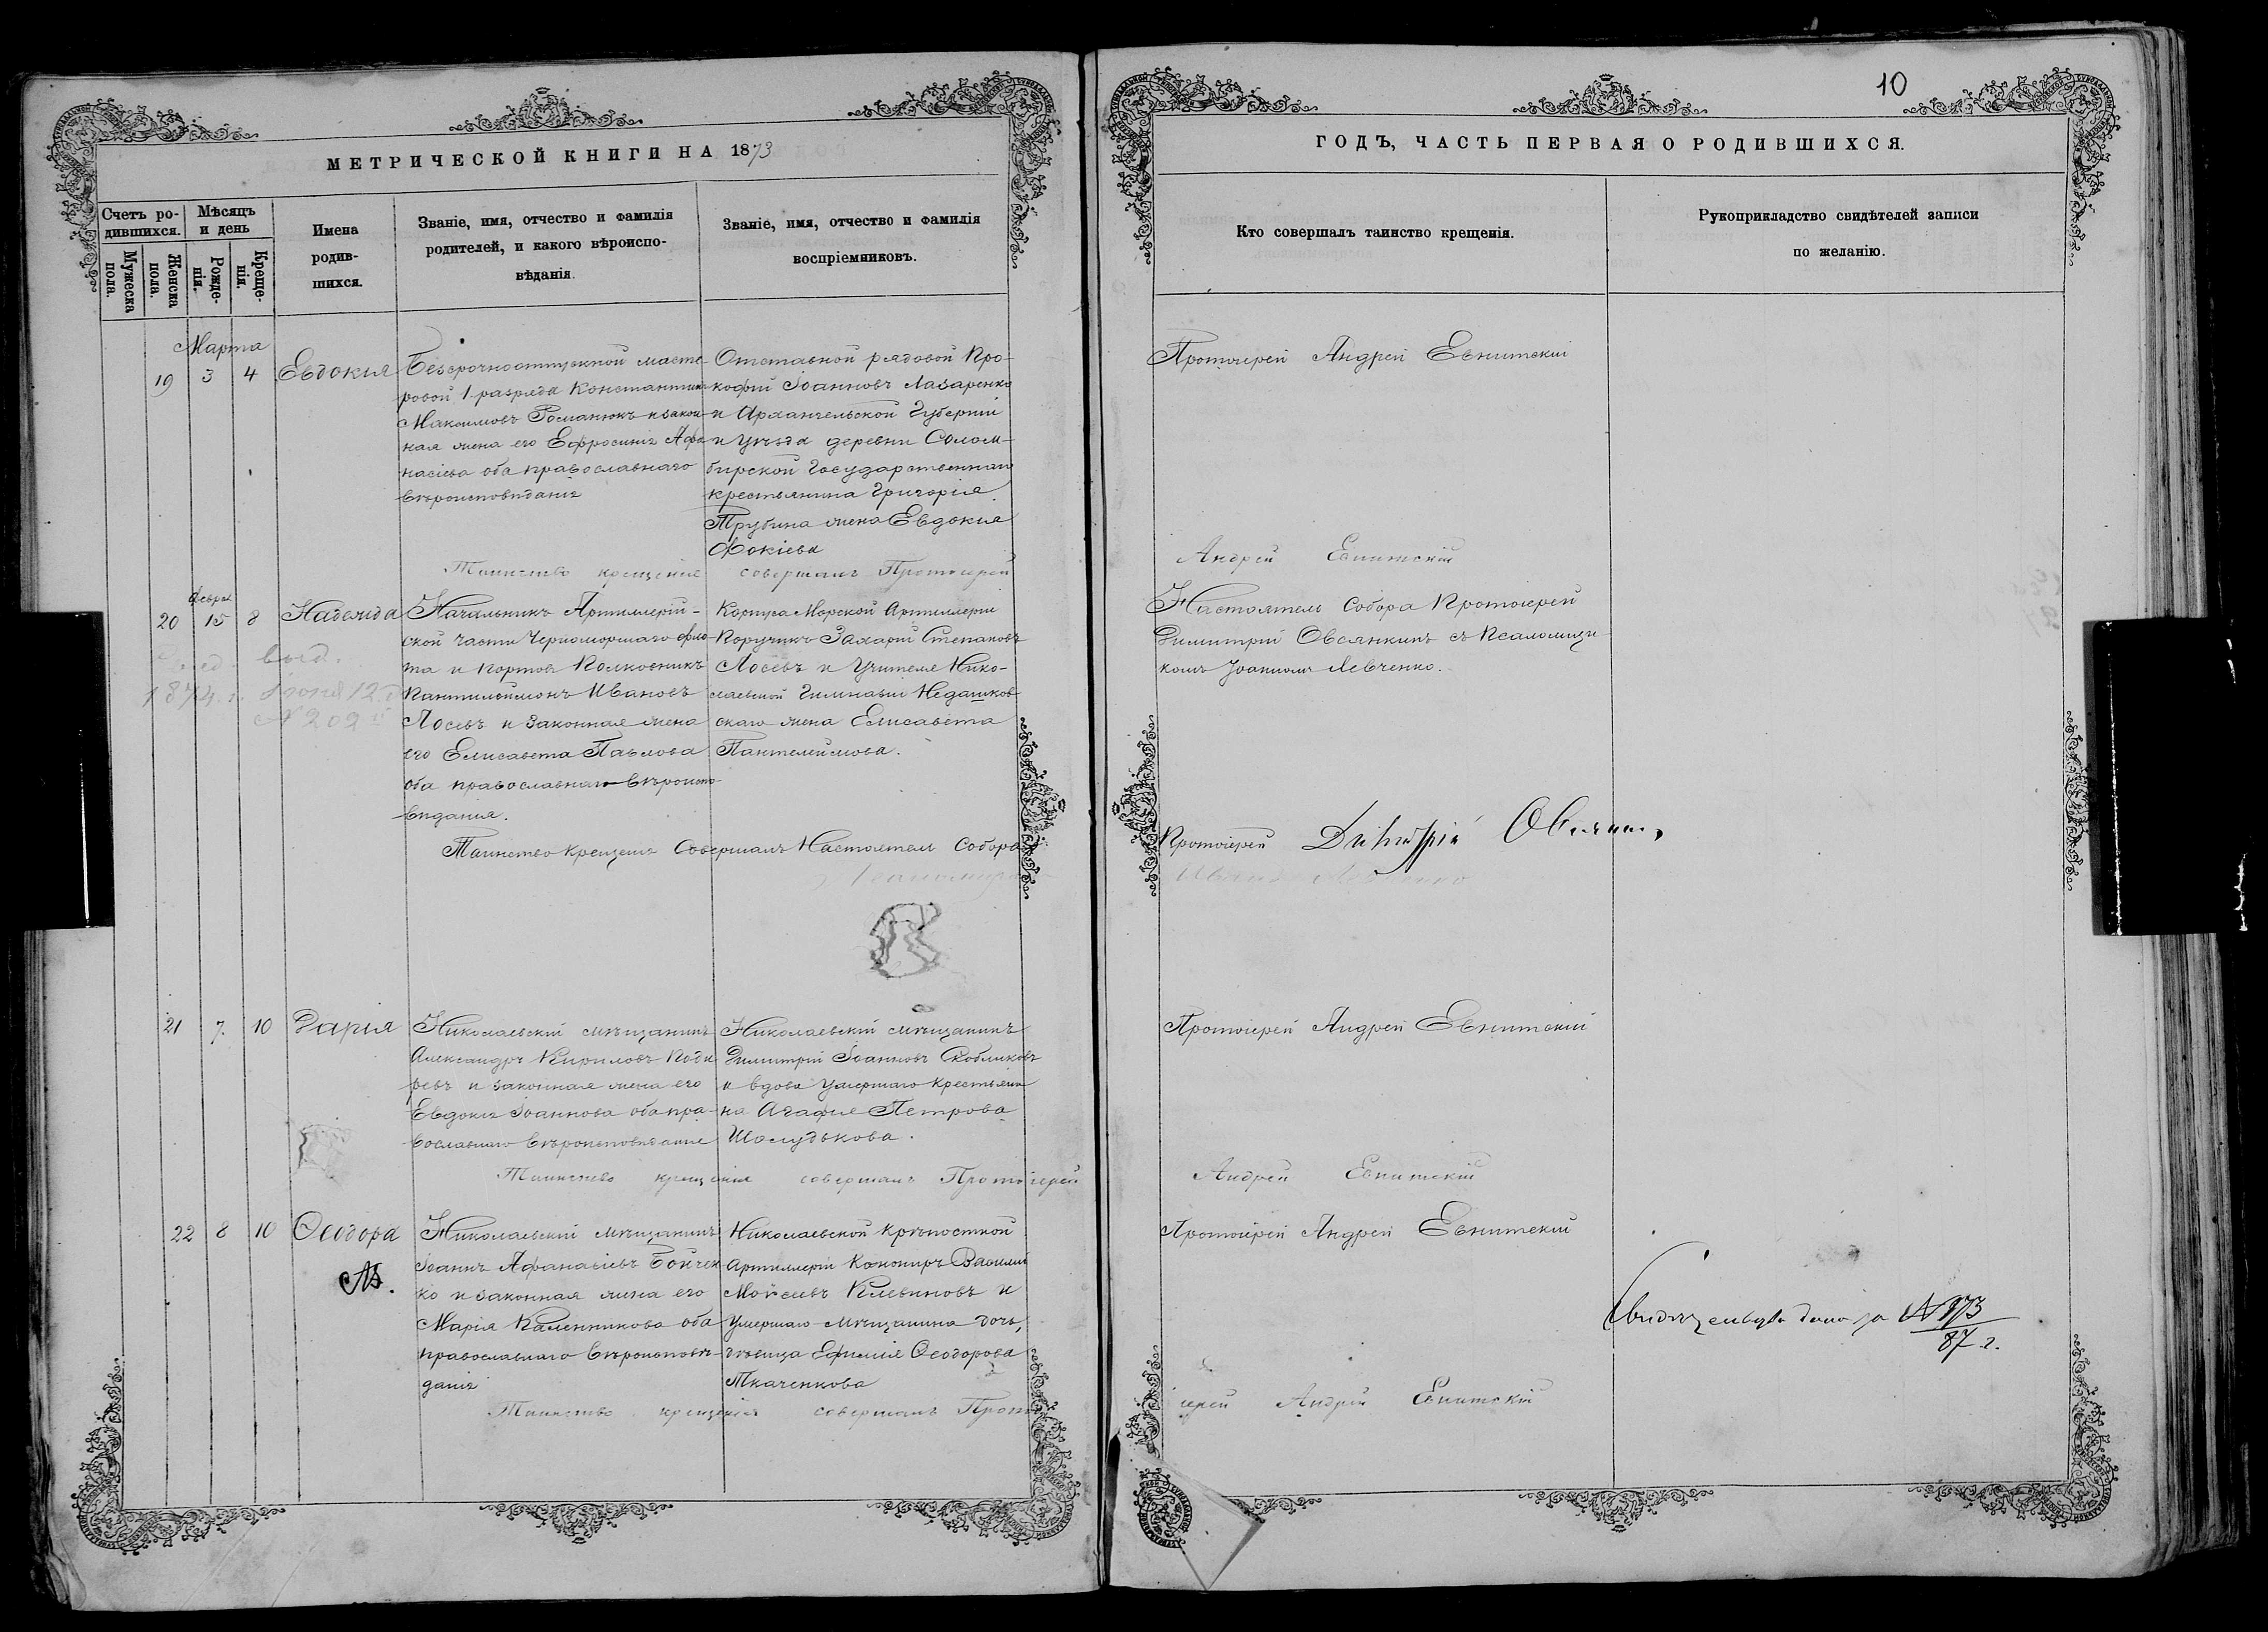 10
МЕТРИЧЕСКОЙ КНИГИ НА 1873
ГОДЪ, ЧАСТЬ ПЕРВАЯ О РОДИВШИХСЯ.
Счетъ ро-
дившихся.
Мужеска
пола.
Женска
пола.
Мѣсяцъ
и день
Рожде-
нія.
Креще-
нія.
Имена
родив-
шихся.
Званіе, имя, отчество и фамилія
родителей, и какого вѣроиспо-
вѣданія.
Званіе, имя, отчество и фамилія
воспріемниковъ.
Кто совершалъ таинство крещенія.
Рукоприкладство свидѣтелей записи
по желанію.
Марта
19 3 4 Евдокия
Безсрочноотпускной масте-
ровой 1 разряда Константинъ
Максимовъ Романюкъ и закон-
ная жена его Ефросинія Афа-
насіева оба православнаго
вѣроисповѣданія
Отставной рядовой Про-
кофій Іоанновъ Лазаренко
и Архангельской Губерніи
и уѣзда деревни Солом-
бирской Государственнаго
крестьянина Григорія
Трубина жена Евдокия
Фокіева
Протоіерей Андрей Евнитскій
Таинство крещенія совершалъ Протоіерей Андрей Евнитскій
Февраля
20 15 8 Надежда
выд.
1874 г. Іюня 12
№ 202
Начальникъ Артиллерій-
ской части Черноморскаго фло-
та и портовъ Полковникъ
Пантилеймонъ Ивановъ
Лосевъ и законная жена
его Елисавета Павлова
оба православнаго вѣроиспо-
вѣданія.
Корпуса Морской Артиллеріи
Поручикъ Захарій Степановъ
Лосевъ и Учителя Нико-
лаевской Гимназіи Недашков-
скаго жена Елисавета
Пантелеймова.
Настоятель Собора Протоіерей
Димитрій Овсянкинъ съ Псаломщи-
комъ Іоанномъ Левченко.
Таинство крещенія Совершалъ Настоятель Собора Протоіерей Димитрій
21 7 10 Дарія
Николаевскій мѣщанинъ
Александръ Кириловъ
и законная жена его
Евдокія Іоаннова оба пра-
вославнаго вѣроисповѣданія
Николаевскій мѣщанинъ
Димитрій Іоанновъ Скобликовъ
и вдова умершаго крестьяни-
на Агафія Петрова
Шолудькова.
Протоіерей Андрей Евнитскій
Таинство крещенія совершалъ Протоіерей Андрей Евнитскій
22 8 10 Ѳеодора
Николаевскій мѣщанинъ
Іоаннъ Афанасіевъ Бойчен-
ко и законная жена его
Марія Каленникова оба
православнаго вѣроисповѣ-
данія
Николаевской крѣпостной
Артиллеріи Канониръ Василій
Моѵсеевъ Клевиновъ и
умершаго мѣщанина дочь,
дѣвица Ефимія Ѳеодорова
Ткаченкова
Протоіерей Андрей Евнитскій
Свидѣтельство дано за № 173
87 г.
Таинство крещенія совершалъ Прото
іерей Андрей Евнитскій